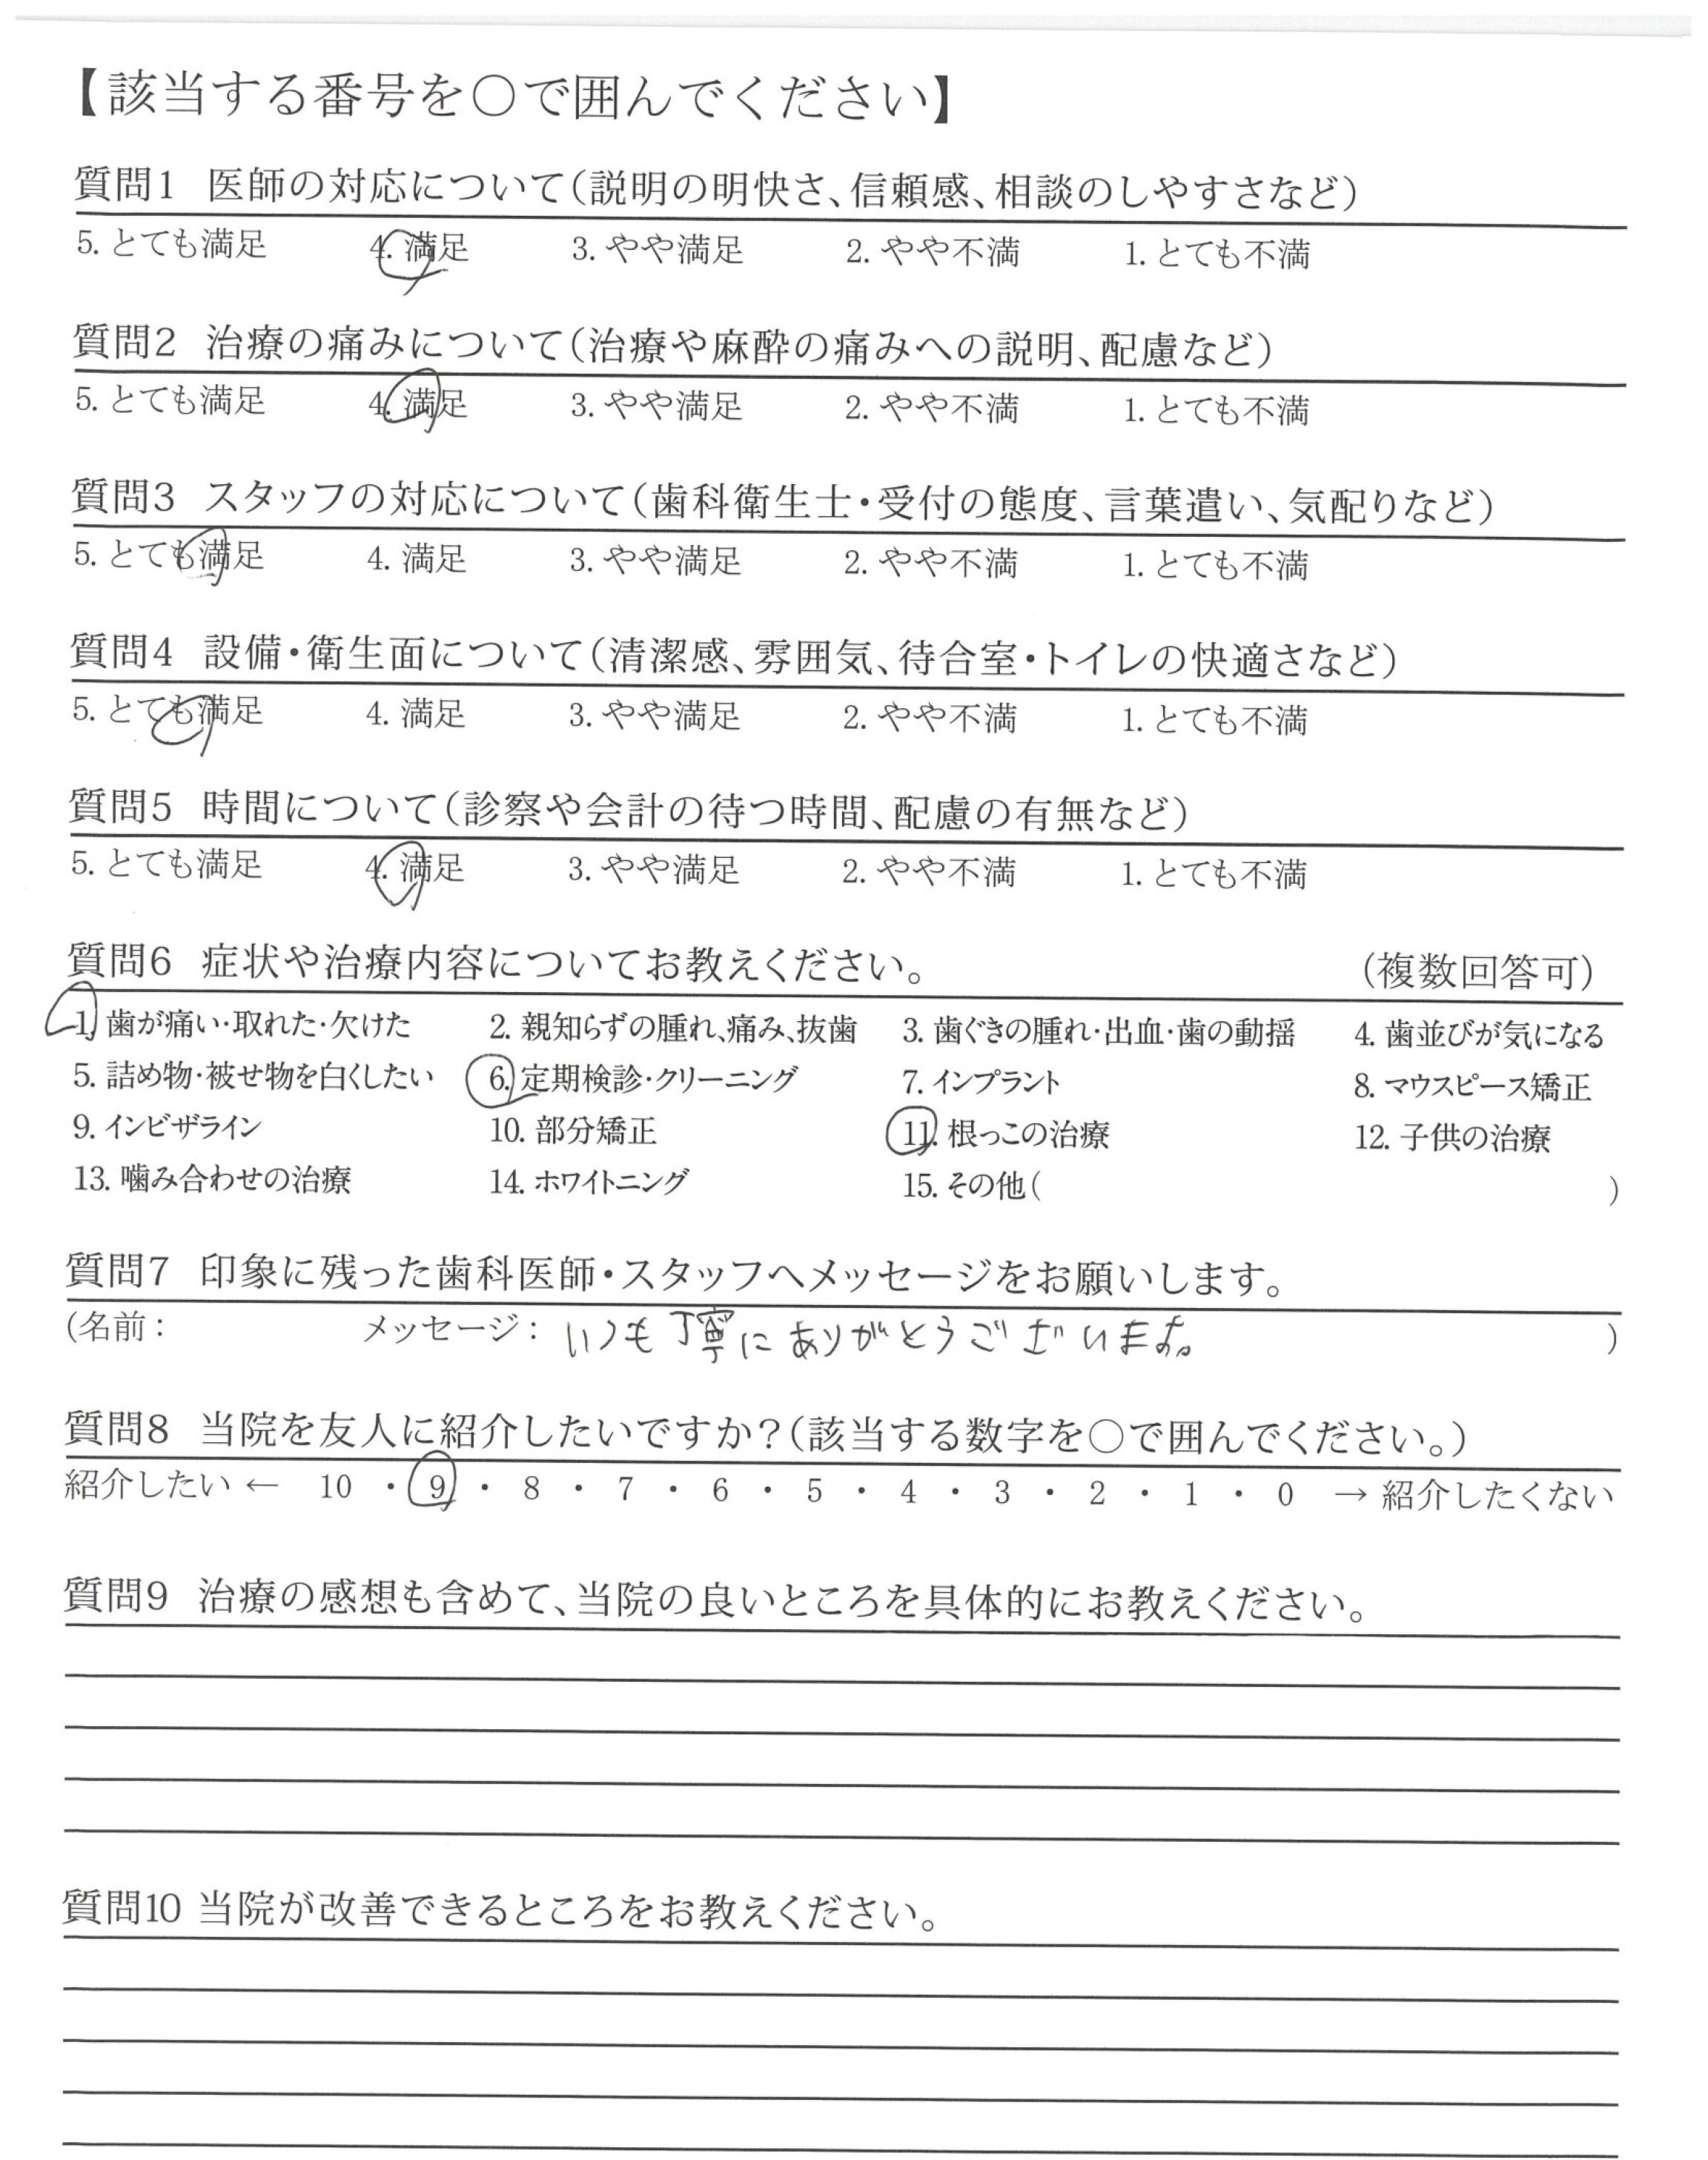 【該当する番号を○で囲んでください】
質問1 医師の対応について(説明の明快さ、信頼感、相談のしやすさなど)
5. とても満足 4. 満足 3. やや満足 2. やや不満 1. とても不満
質問2 治療の痛みについて(治療や麻酔の痛みへの説明、配慮など)
5. とても満足 4. 満足 3. やや満足 2. やや不満 1. とても不満
質問3 スタッフの対応について(歯科衛生士・受付の態度、言葉遣い、気配りなど)
5. とても満足 4. 満足 3. やや満足 2. やや不満 1. とても不満
質問4 設備・衛生面について(清潔感、雰囲気、待合室・トイレの快適さなど)
5. とても満足 4. 満足 3. やや満足 2. やや不満 1. とても不満
質問5 時間について(診察や会計の待つ時間、配慮の有無など)
5. とても満足 4. 満足 3. やや満足 2. やや不満 1. とても不満
質問6 症状や治療内容についてお教えください。 (複数回答可)
1. 歯が痛い・取れた・欠けた 2. 親知らずの腫れ、痛み、抜歯 3. 歯ぐきの腫れ・出血・歯の動揺 4. 歯並びが気になる
5. 詰め物・被せ物を白くしたい 6. 定期検診・クリーニング 7. インプラント 8. マウスピース矯正
9. インビザライン 10. 部分矯正 11. 根っこの治療 12. 子供の治療
13. 噛み合わせの治療 14. ホワイトニング 15. その他( )
質問7 印象に残った歯科医師・スタッフへメッセージをお願いします。
(名前: メッセージ: いつも丁寧にありがとうございます。 )
質問8 当院を友人に紹介したいですか?(該当する数字を○で囲んでください。)
紹介したい ← 10 ・ 9 ・ 8 ・ 7 ・ 6 ・ 5 ・ 4 ・ 3 ・ 2 ・ 1 ・ 0 → 紹介したくない
質問9 治療の感想も含めて、当院の良いところを具体的にお教えください。
質問10 当院が改善できるところをお教えください。